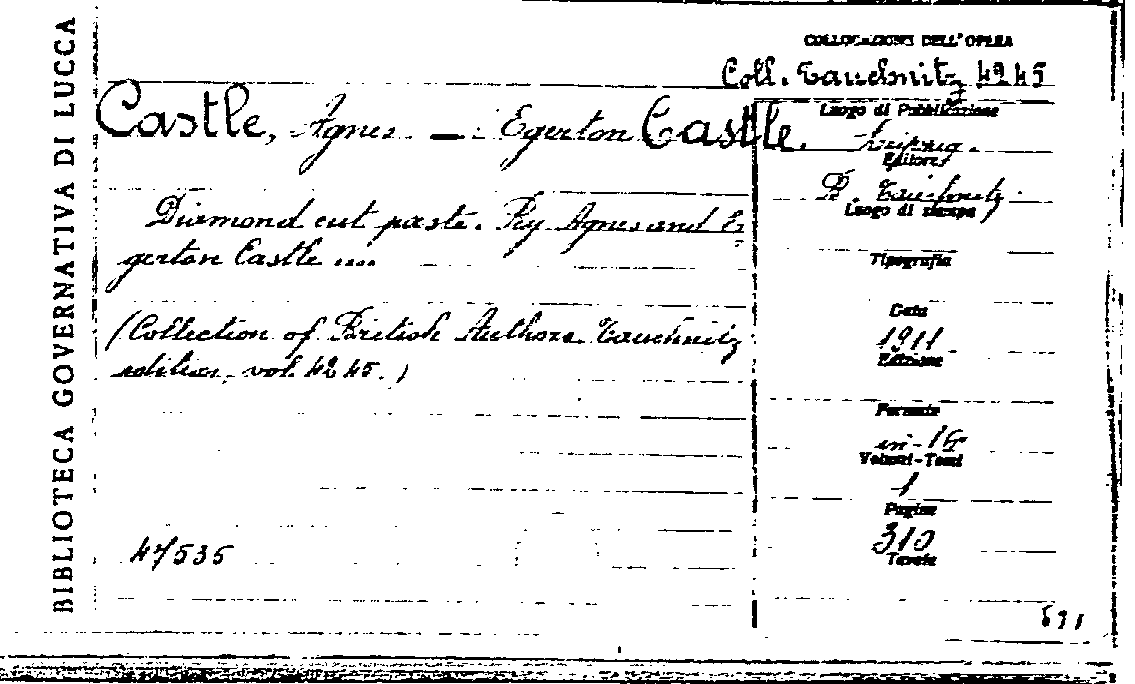 BIBLIOTECA GOVERNATIVA DI LUCCA
COLLOCAZIONE DELL'OPERA
Coll. Tauchnitz 4245
Castle, Agnes — Egerton Castle.
Luogo di Pubblicazione
Leipzig.
Editore
B. Tauchnitz
Luogo di stampa
Diamond cut paste. By Agnes and E-
gerton Castle ....
Tipografia
(Collection of British Authors. Tauchnitz
edition, vol. 4245.)
Data
1911
Edizione
Formato
in-16°
Volumi-Tomi
1
Pagine
310
Tavole
47535
691